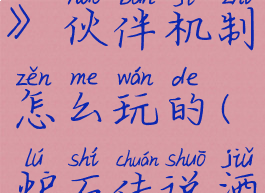 》伙伴机制
zěn me wán de
怎么玩的(
lú shí chuán shuō jiǔ
炉石传说酒